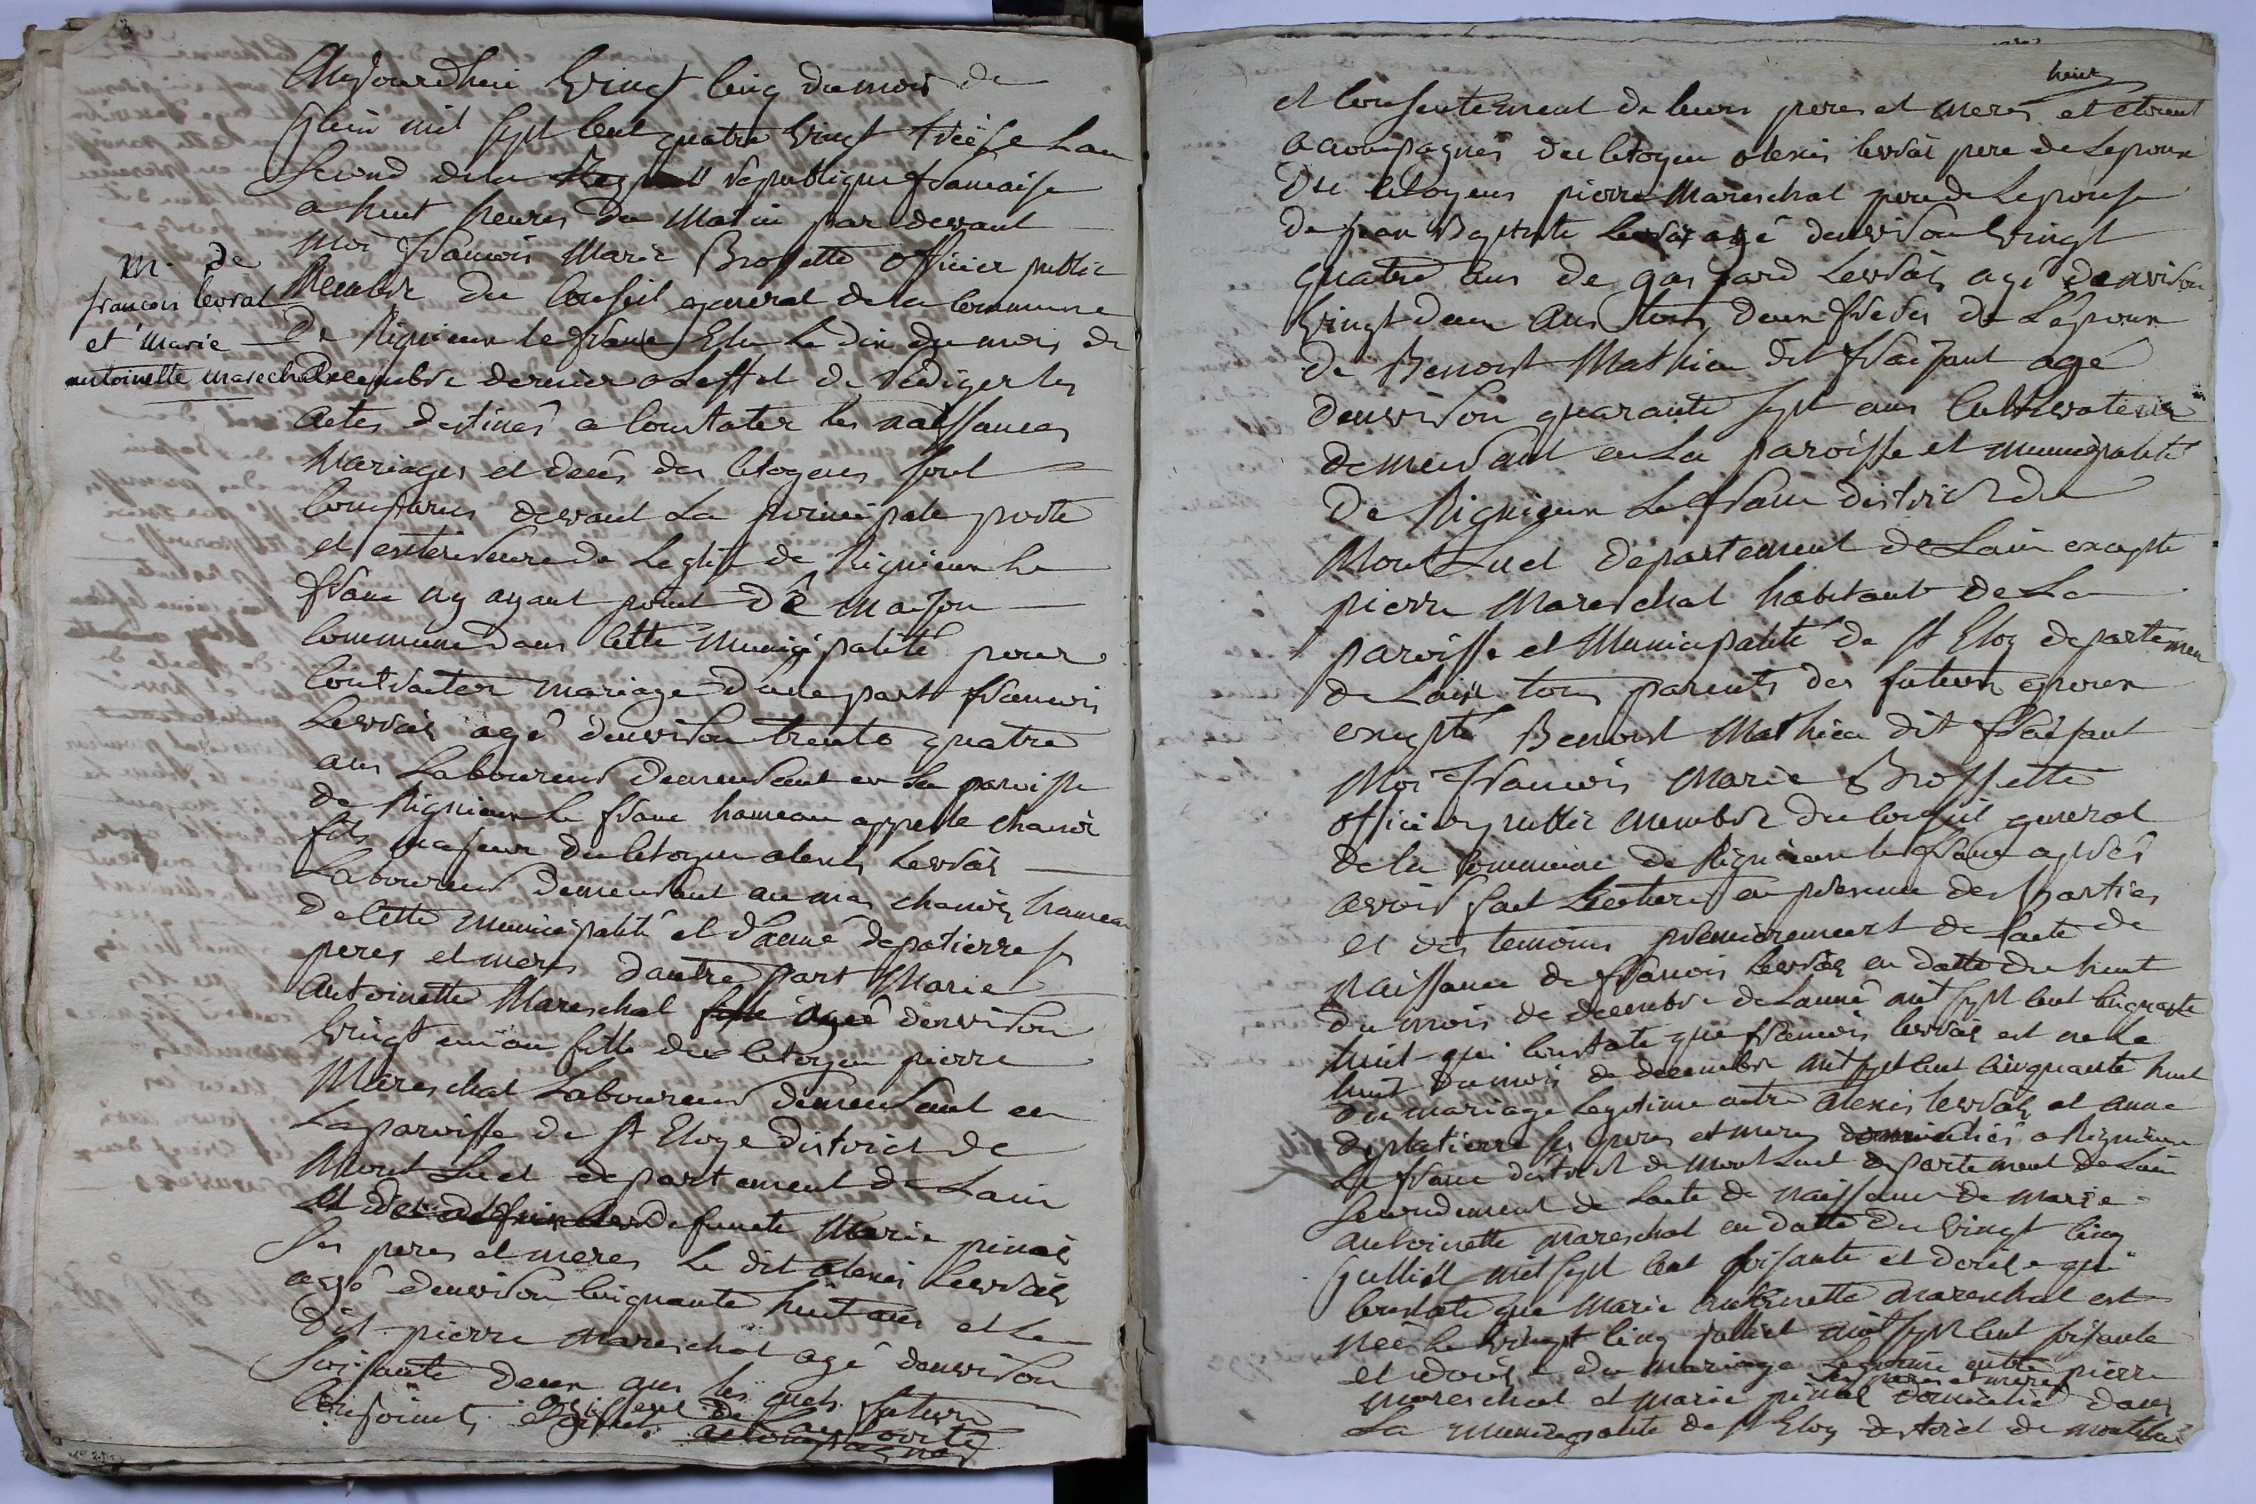 m. de
francois levrat
et marie
antoinette marechal
Aujourdhui vingt cinq du mois de
juin mil sept cent quatre vingt treize Lan
Second dela republique francaise
a huit heures du matin par devant
moi francois Marie Brossette officier public
membre du Conseil general dela Commune
De Rignieux le franc Elu Le dix du mois de
decembre dernier a Leffet de rediger les
actes destinés a Constater les naissances
Mariages et decés des Citoyens sont
Comparus devant La principale porte
et exterieure de Leglise de Rignieux le
franc ny ayant point de maison
Commune dans Cette municipalité pour
Contracter mariage dune part francois
Levrat agé denviron trente quatre
ans Laboureur demeurant en La paroisse
de Rignieux Le franc hameau appellé chanoz
fils majeur du Citoyen alexis Levrat
Laboureur demeurant au mas chanoz hameau
de Cette municipalité et danne deplatierre ses
peres et meres dautre part Marie
Antoinette Mareschal agée denviron
vingt un an fille du Citoyen pierre
Mareschal Laboureur demeurant en
La paroisse de st Eloye district de
Mont Luel departement de Lain
et de defuncte Marie
ses peres et meres Le dit alexis Levrat
agé denviron Cinquante huit ans et Le
dit pierre Mareschal agé denviron
Soixante deux ans les quels futurs
Conjoints de Lautorité
huit
et Consentement de leurs peres et meres et etoient
acompagnés du Citoyen alexis levrat pere de Lepoux
du Citoyens pierre Mareschal pere de Lepouse
de jean Baptiste Levrat agé denviron vingt
quatre ans de gaspard Levrat agé denviron
vingt deux ans tous deux freres de Lépoux
de Benoist Mathieu dit fraisant agé
denviron quarante sept ans Cultivateur
demeurant en La paroisse et municipalité
de Rignieux Le franc district de
Mont Luel departement de Lain excepté
pierre Mareschal habitant de La
paroisse et Municipalité de st Eloy departemen
de Lain tous parents des futurs epoux
excepté Benoist Mathieu dit fraisant
Moi francois Marie Brossette
officier public membre du Conseil general
de la Commune de Rignieux le franc après
avoir fait Lecture en presence des parties
et des temoins premierement de Lacte de
naissance de francois levrat en datte du huit
du mois de decembre de Lannée mil sept cent cinquante
huit qui Constate que francois levrat est né le
huit du mois de decembre mil sept cent cinquante huit
du mariage legitime entre alexis levrat et anne
deplatierre ses peres et meres domiciliés a Rignieux
Le franc district de mont Luel departement de Lain
Secondement de Lacte de naissance de marie
antoinette mareschal en datte du vingt cinq
juillet mil sept cent soixante et douze qui
Constate que Marie antoinette mareschal est
née le vingt cinq juillet mil sept cent soixante
et douze du mariage legitime entre pierre
ses peres et meres
mareschal et marie domicilié dans
La municipalité de st Eloy district de montluel